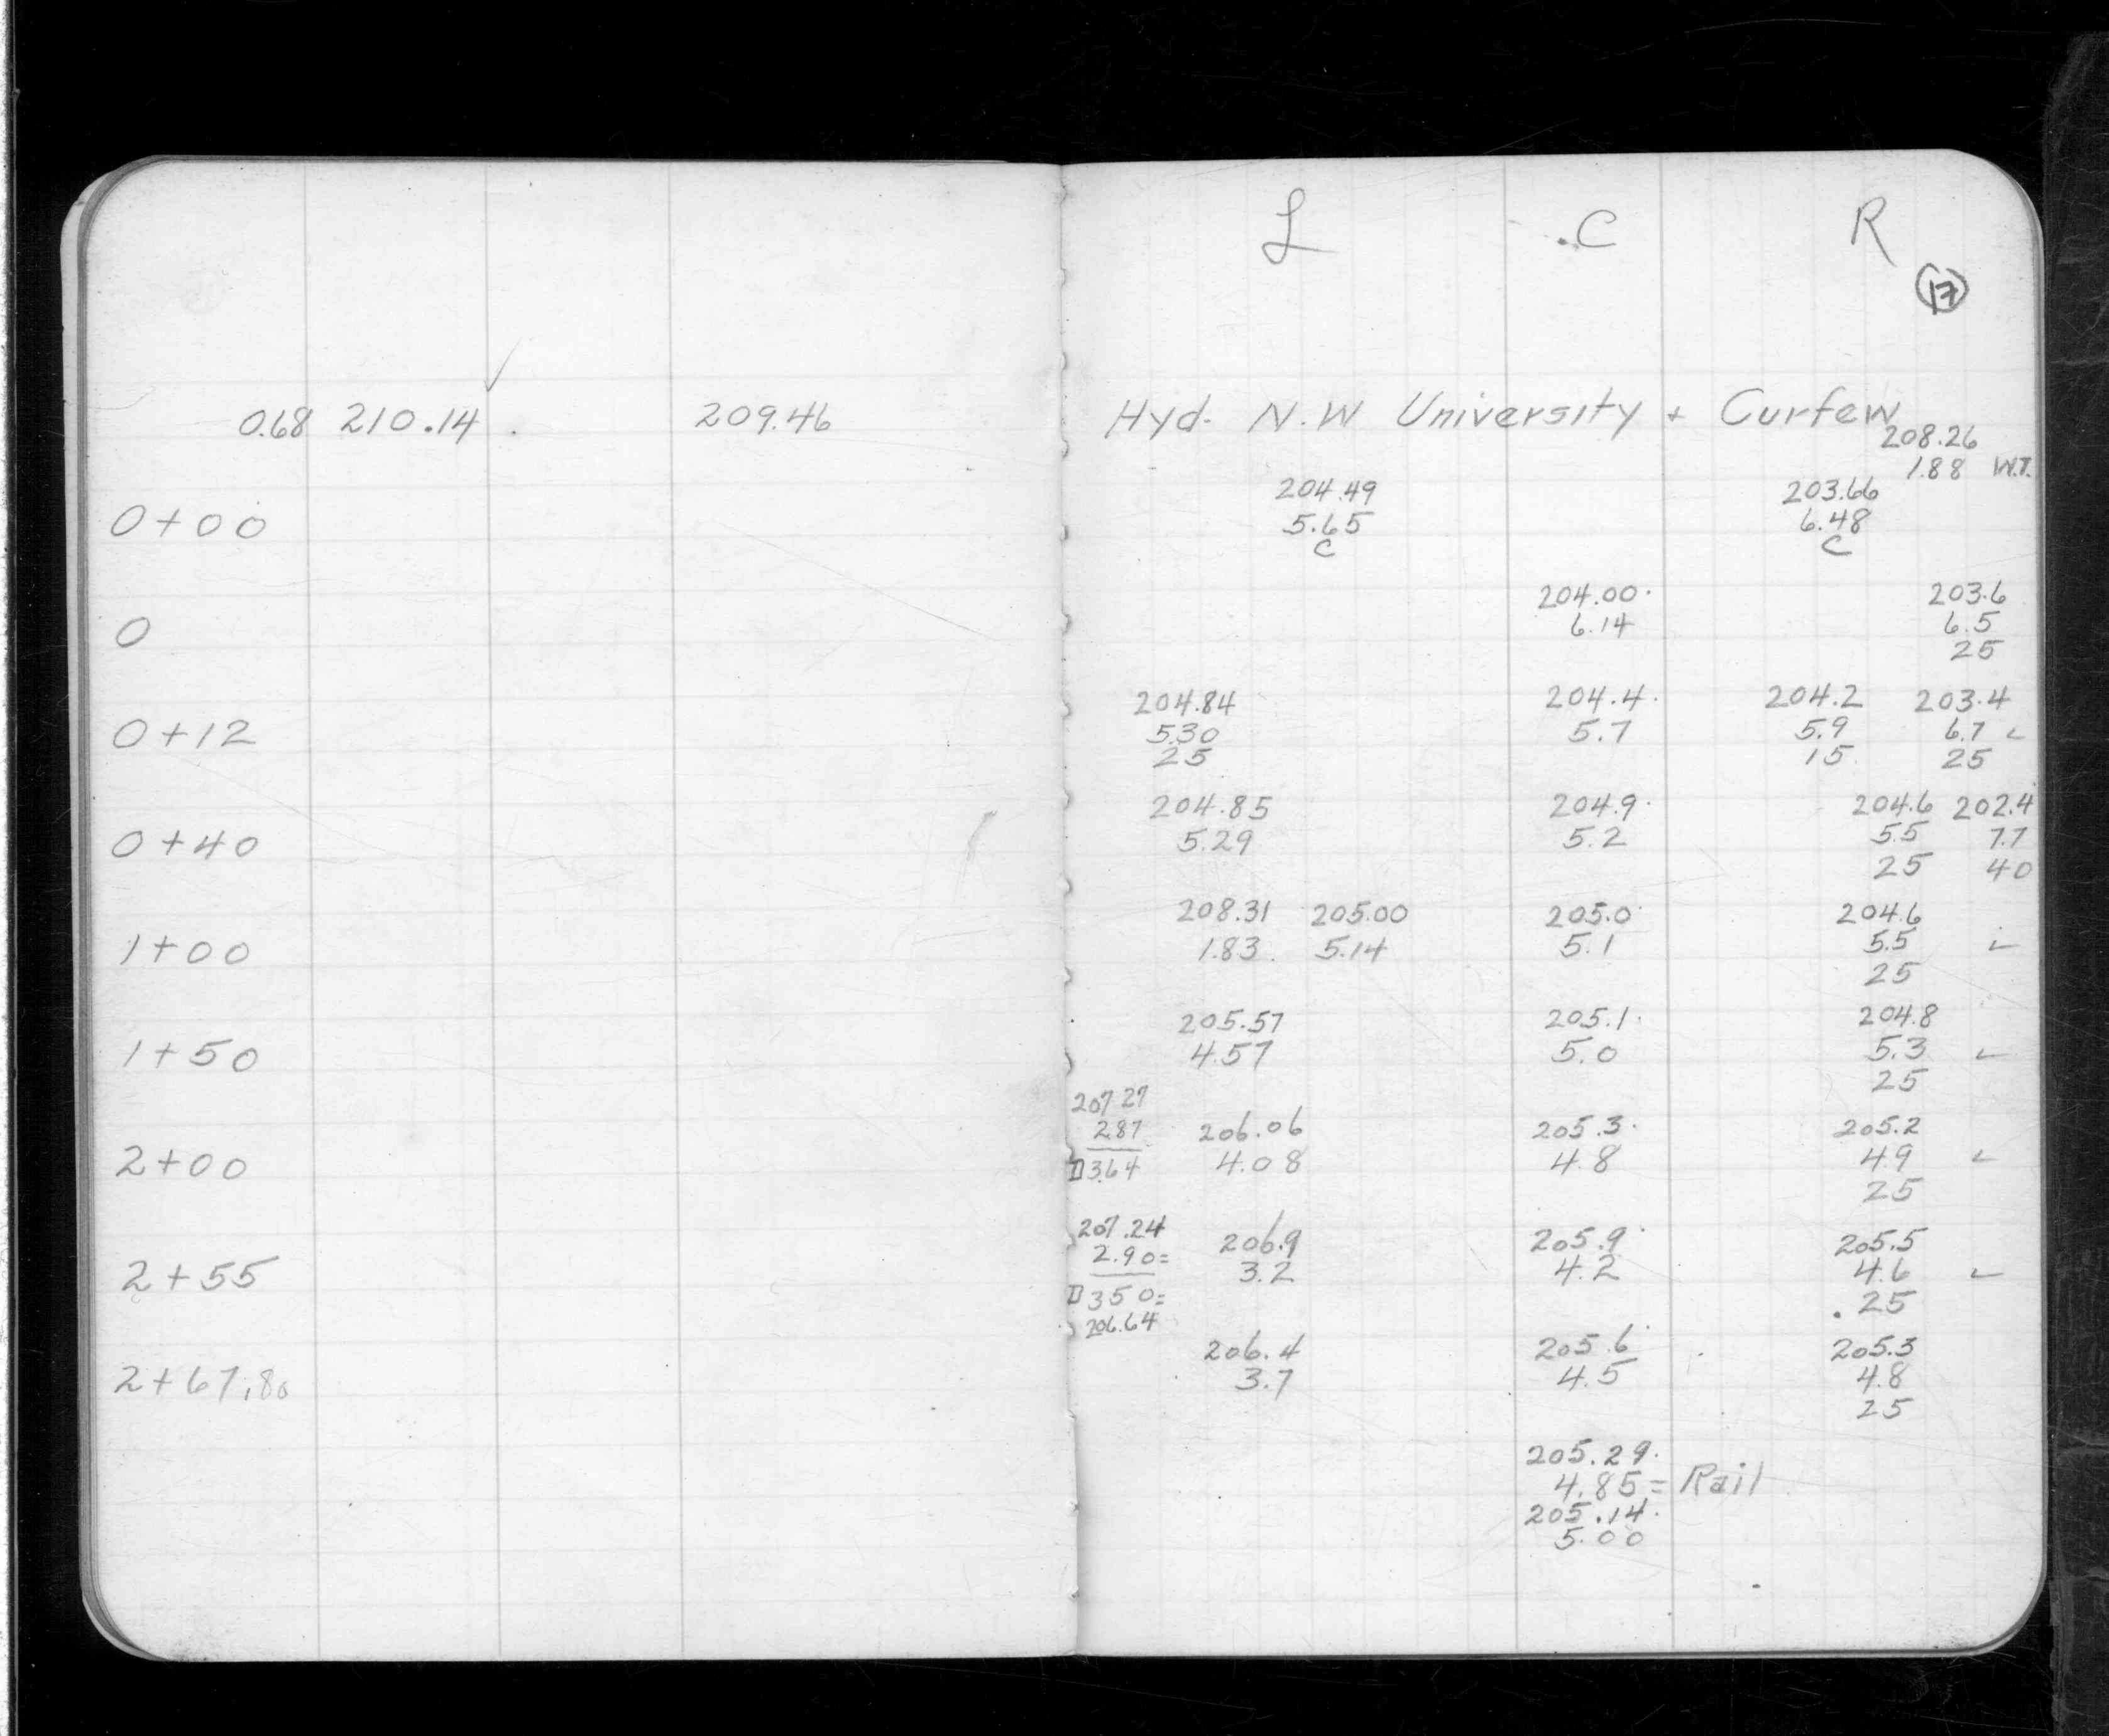 L .C R
17
0.68 210.14 209.46 Hyd. N.W University + Curfew
208.26
1.88 W.T.
204.49 203.66
0+00 5.65 6.48
C C
204.00 203.6
0 6.14 6.5
25
204.84 204.4 204.2 203.4
0+12 5.30 5.7 5.9 6.7
25 15 25
204.85 204.9 204.6 202.4
0+40 5.29 5.2 5.5 7.7
25 40
208.31 205.00 205.0 204.6
1+00 1.83 5.14 5.1 5.5
25
205.57 205.1 204.8
1+50 4.57 5.0 5.3
25
207 27
287 206.06 205.3 205.2
2+00 D 3.64 4.08 4.8 4.9
25
207.24 206.9 205.9 205.5
2+55 2.90= 3.2 4.2 4.6
D 350= 25
206.64
206.4 205.6 205.3
2+67.80 3.7 4.5 4.8
25
205.29
4.85= Rail
205.14
5.00